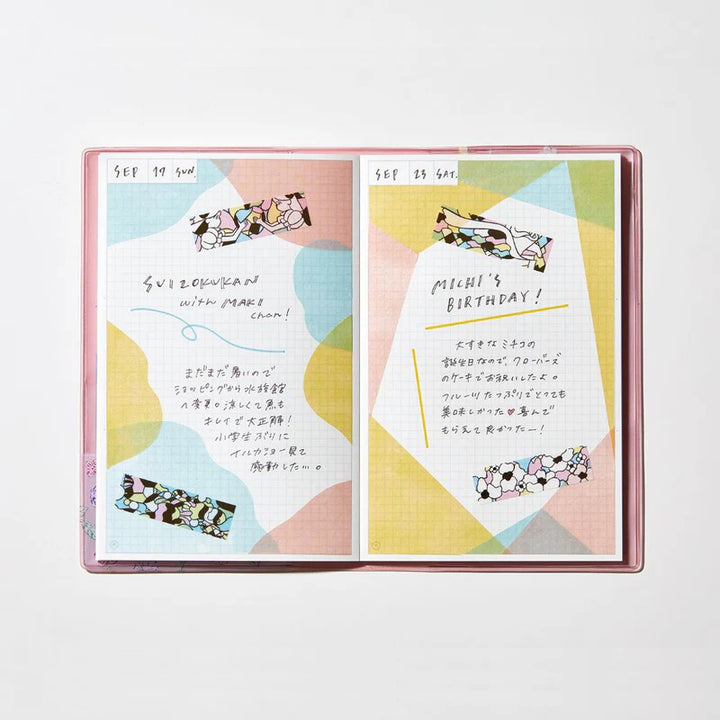 SEP 17 SUN.
SUIZOKUKAN
with MAKI
chan!
まだまだ暑いので
ショッピングから水族館
へ変更。涼しくて魚も
キレイで大正解!
小学生ぶりに
イルカショー見て
感動した…。
SEP 23 SAT.
MICHI'S
BIRTHDAY!
大すきなミチコの
誕生日なので、クローバーズ
のケーキでお祝いしたよ。
フルーツたっぷりでとっても
美味しかった♥喜んで
もらえて良かったー!